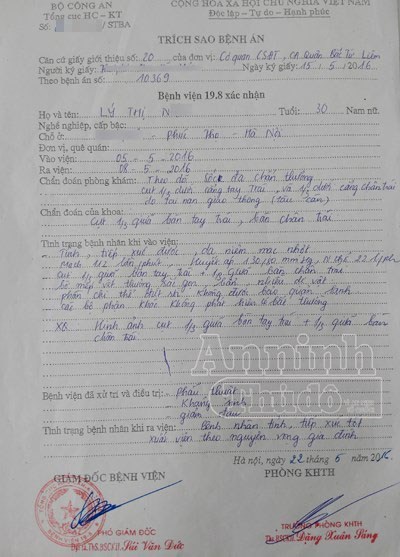 BỘ CÔNG AN
Tổng cục HC - KT
Số: /STBA
CỘNG HÒA XÃ HỘI CHỦ NGHĨA VIỆT NAM
Độc lập - Tự do - Hạnh phúc
TRÍCH SAO BỆNH ÁN
Căn cứ giấy giới thiệu số: 20 của đơn vị: Cơ quan CSĐT, CA Quận Bắc Từ Liêm
Người ký giấy: Ngày ký giấy: 15/5/2016
Theo bệnh án số: 10369
Bệnh viện 19.8 xác nhận
Họ và tên: LÝ THỊ N Tuổi: 30 Nam nữ.
Nghề nghiệp, cấp bậc:
Chỗ ở: - Phúc Thọ - Hà Nội
Đơn vị, quê quán:
Vào viện: 05 - 5 - 2016
Ra viện: 08 - 5 - 2016
Chẩn đoán phòng khám: Theo dõi sốc đa chấn thương
cụt 1/3 dưới cẳng tay trái, và 1/3 dưới cẳng chân trái
do tai nạn giao thông (tàu cán)
Chẩn đoán của khoa:
Cụt 1/3 quá bàn tay trái, bàn chân trái
Tình trạng bệnh nhân khi vào viện:
- Tỉnh, tiếp xúc được, da niêm mạc nhợt
Mạch lần/phút, Huyết áp 130/80 mmHg, N.thở 22 l/ph
cụt 1/3 quá bàn tay trái + 1/3 quá bàn chân trái
bờ mép vết thương nham nhở, nhiều dị vật
phần chi thể đứt rời không được bảo quản lạnh
các bộ phận khác không phát hiện gì bất thường
XQ: Hình ảnh cụt 1/3 quá bàn tay trái + 1/3 quá bàn
chân trái.
Anninh
Thủ đô
Bệnh viện đã xử trí và điều trị: - Phẫu thuật
- Kháng sinh
- giảm đau
Tình trạng bệnh nhân khi ra viện: - Bệnh nhân tỉnh, tiếp xúc tốt
xuất viện theo nguyện vọng gia đình
Hà nội, ngày 22 tháng 5 năm 2016
GIÁM ĐỐC BỆNH VIỆN
PHÒNG KHTH
PHÓ GIÁM ĐỐC
TRƯỞNG PHÒNG KHTH
Ths.BSCKII. Bùi Văn Đức
Ths.BSCKII. Đặng Xuân Sáng